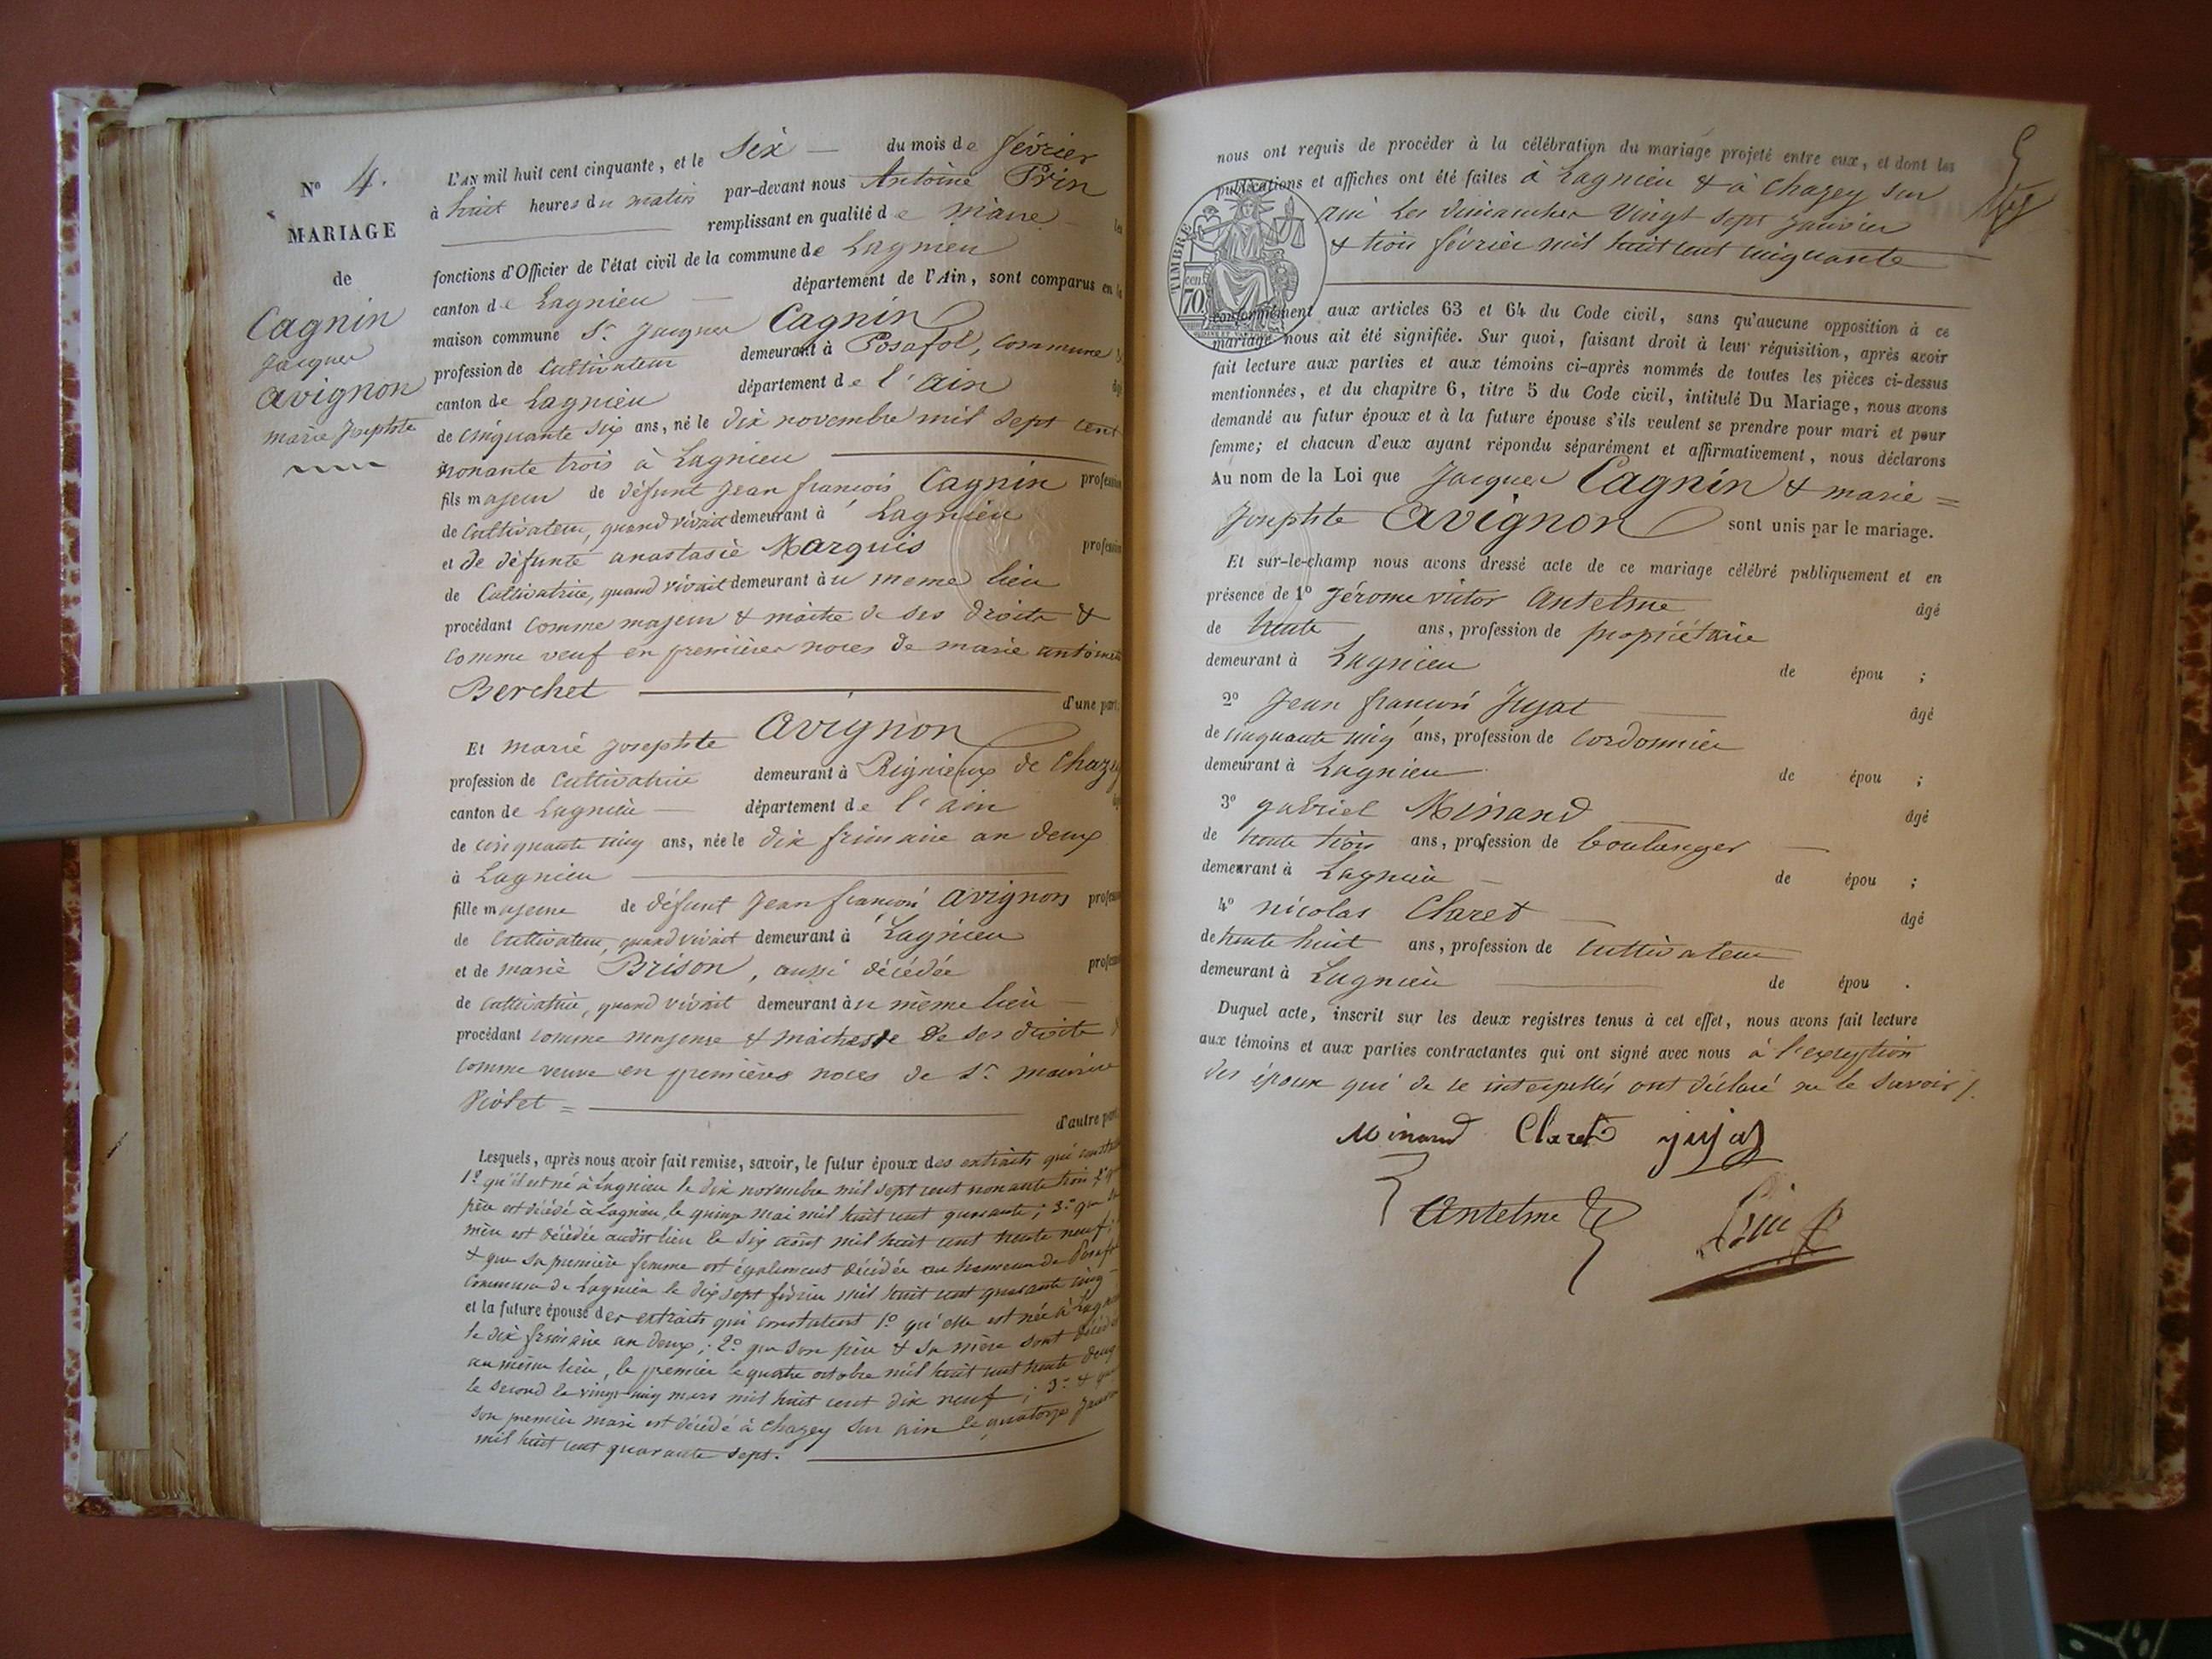 N° 4.
MARIAGE
de
Cagnin
Jacques
Avignon
marie Josephte
L'AN mil huit cent cinquante, et le Six du mois de février
à huit heures du matin par-devant nous Antoine Prin
remplissant en qualité de Maire les
fonctions d'Officier de l'état civil de la commune de Lagnieu
canton de Lagnieu département de l'Ain, sont comparus en la
maison commune Sr Jacques Cagnin
profession de Cultivateur demeurant à Posafol, commune
canton de Lagnieu département de l'ain âgé
de cinquante six ans, né le dix novembre mil sept cent
nonante trois à Lagnieu
fils majeur de défunt Jean françois Cagnin profession
de Cultivateur, quand vivait demeurant à Lagnieu
et de défunte anastasie Marquis profession
de Cultivatrice, quand vivait demeurant au meme lieu
procédant comme majeur & maitre de ses droits &
comme veuf en premières noces de marie antoinette
Berchet d'une part.
Et marie Josephte Avignon
profession de Cultivatrice demeurant à Rignieux de Chazey
canton de Lagnieu département de l'ain
de cinquante cinq ans, née le dix frimaire an deux
à Lagnieu
fille majeure de défunt Jean françois Avignon profession
de Cultivateur, quand vivait demeurant à Lagnieu
et de marie Brison, aussi décédée profession
de cultivatrice, quand vivait demeurant au même lieu
procédant comme majeure & maitresse de ses droits &
comme veuve en premières noces de Sr maurice
Violet d'autre part.
Lesquels, après nous avoir fait remise, savoir, le futur époux des extraits qui constatent
1° qu'il est né à Lagnieu le dix novembre mil sept cent nonante trois; 2° que
père est décédé à Lagnieu, le quinze mai mil huit cent quarante; 3° que sa
mère est décédée audit lieu le six août mil huit cent trente neuf;
& que sa première femme est également décédée au hameau de Posafol
Commune de Lagnieu le dix sept février mil huit cent quarante cinq
et la future épouse des extraits qui constatent 1° qu'elle est née à Lagnieu
le dix frimaire an deux; 2° que son père & sa mère sont décédés
au même lieu, le premier le quatre octobre mil huit cent trente deux
le second le vingt cinq mars mil huit cent dix neuf; 3° & que
son premier mari est décédé à Chazey sur ain le quatorze Janvier
mil huit cent quarante sept.
nous ont requis de procéder à la célébration du mariage projeté entre eux, et dont les
publications et affiches ont été faites à Lagnieu & à Chazey sur
ain les dimanches Vingt sept Janvier
& trois février mil huit cent cinquante
TIMBRE
70 cen
conformément aux articles 63 et 64 du Code civil, sans qu'aucune opposition à ce
mariage nous ait été signifiée. Sur quoi, faisant droit à leur réquisition, après avoir
fait lecture aux parties et aux témoins ci-après nommés de toutes les pièces ci-dessus
mentionnées, et du chapitre 6, titre 5 du Code civil, intitulé Du Mariage, nous avons
demandé au futur époux et à la future épouse s'ils veulent se prendre pour mari et pour
femme; et chacun d'eux ayant répondu séparément et affirmativement, nous déclarons
Au nom de la Loi que Jacques Cagnin & marie =
Josephte Avignon sont unis par le mariage.
Et sur-le-champ nous avons dressé acte de ce mariage célébré publiquement et en
présence de 1° Jérome victor Antelme âgé
de trente ans, profession de propriétaire
demeurant à Lagnieu de épou ;
2° Jean françois Jujat âgé
de cinquante cinq ans, profession de cordonnier
demeurant à Lagnieu de épou ;
3° gabriel Minand âgé
de trente trois ans, profession de boulanger
demeurant à Lagnieu de épou ;
4° nicolas Claret âgé
de trente huit ans, profession de Cultivateur
demeurant à Lagnieu de épou .
Duquel acte, inscrit sur les deux registres tenus à cet effet, nous avons fait lecture
aux témoins et aux parties contractantes qui ont signé avec nous à l'exception
des époux qui de ce interpellés ont déclaré ne le savoir /.
Minand Claret jujat
Antelme Prin